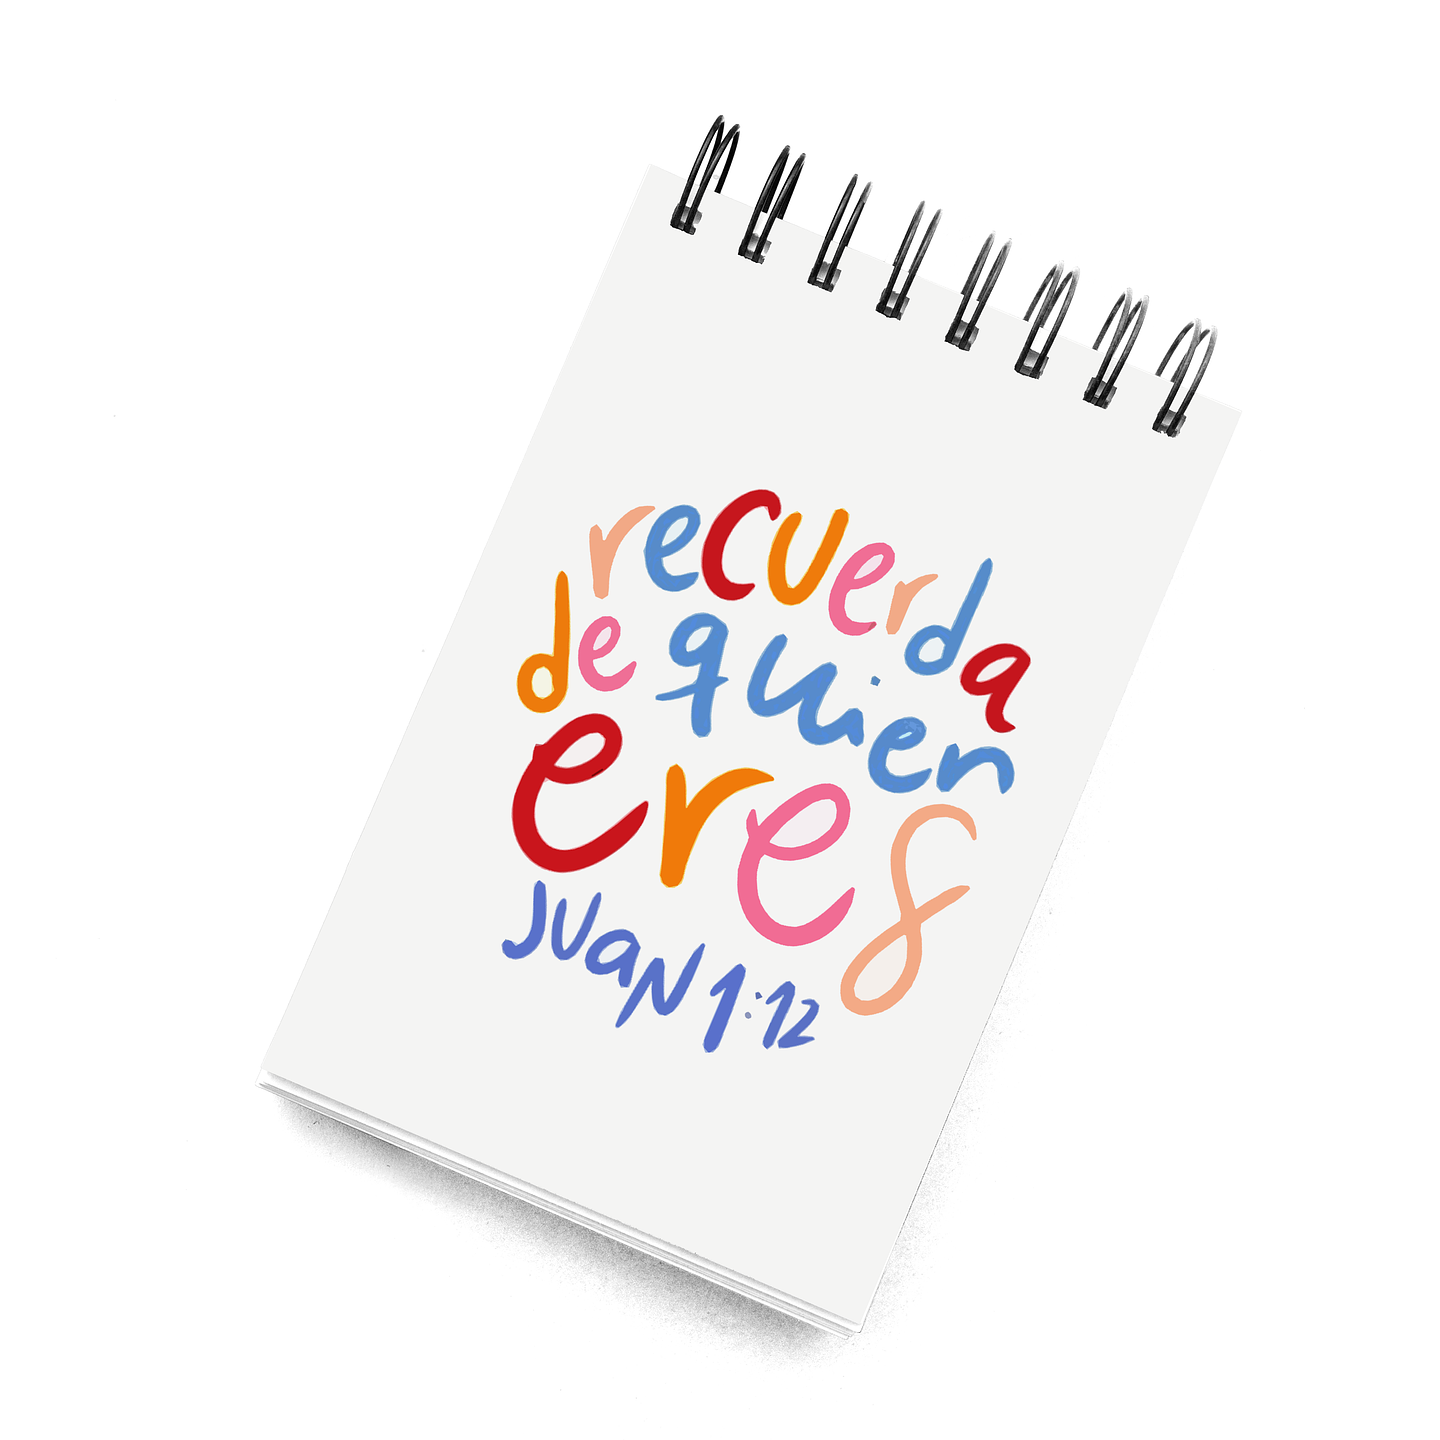 recuerda
de quien
eres
JUAN 1:12